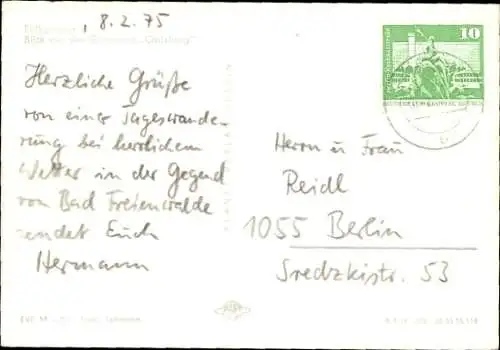 8.2.75
Blick von der Gaststätte „Carlsburg"
Herzliche Grüße
von einer Tageswande-
rung bei herrlichem
Wetter in der Gegend
von Bad Freienwalde
sendet Euch
Hermann
10
Herrn u Frau
Reidl
1055 Berlin
Sredzkistr. 53